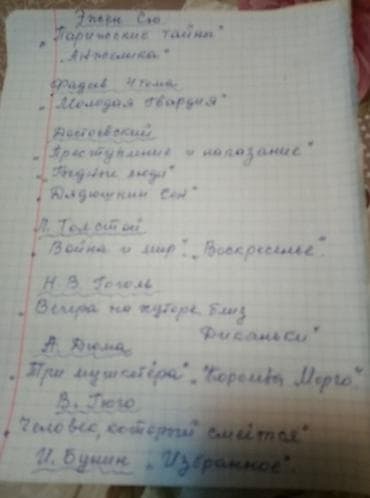 Эжен Сю
„Парижские тайны"
„Анжелика"
Фадеев
„Молодая гвардия"
Достоевский
„Преступление и наказание"
„Бедные люди"
„Дядюшкин сон"
Л. Толстой
„Война и мир", „Воскресенье".
Н. В. Гоголь
„Вечера на хуторе близ
Диканьки"
А. Дюма
„Три мушкетёра", „Королева Марго".
В. Гюго
„Человек, который смеётся"
И. Бунин „Избранное".